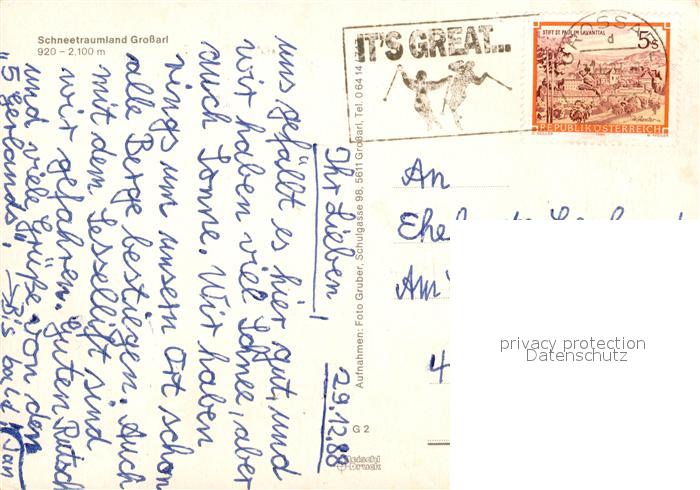 Schneetraumland Großarl
920 – 2.100 m
Ihr Lieben! 29.12.88
uns gefällt es hier gut, und
wir haben viel Schnee, aber
auch Sonne. Wir haben
rings um unsern Ort schon
alle Berge bestiegen. Auch
mit dem Sessellift sind
wir gefahren. Guten Rutsch
und viele Grüße von den
"5 gerlands". → Bis bald! Jan
Aufnahmen: Foto Gruber, Schulgasse 98, 5611 Großarl, Tel. 0 64 14
G 2
Druck
IT'S GREAT...
GROSSA
d
STIFT ST. PAUL IM LAVANTTAL
5 S
REPUBLIK ÖSTERREICH
An
Am
4
privacy protection
Datenschutz